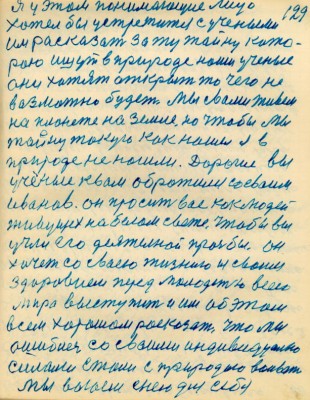 Я у этом понимающие лицо 129
хотел бы устретится с учеными
им расказат за ту тайну кото-
рою ищут в природе наши ученые
они хотят открыт то чего не
возможно будет. Мы с вами живем
на планете на земле но чтобы мы
тайну такую как нашел я в
природе не нашли. Дорогие вы
ученые к вам обротился со своим
Иванов. он просит вас как людей
живущих на белом свете, чтобы вы
учли его деятелной прозбы. он
хочет со своею жизнию и своим
здоровием перед молодежю всего
мира выиступит и им об этом
всем хорошом росказат, что мы
ошиблис со своими индивидуално
силами стали с природою воеват
Мы воюем с нею для себя